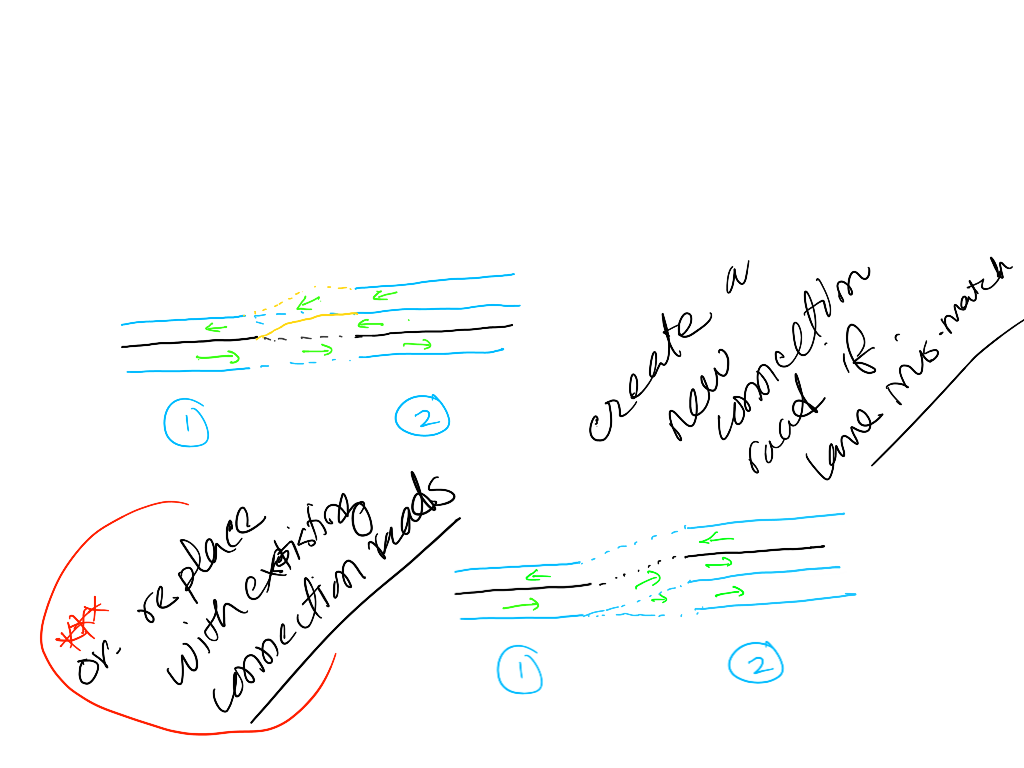 1
2
create a
new
connection
road if
lane mis-match
***
or replace
with existing
connection roads
1
2